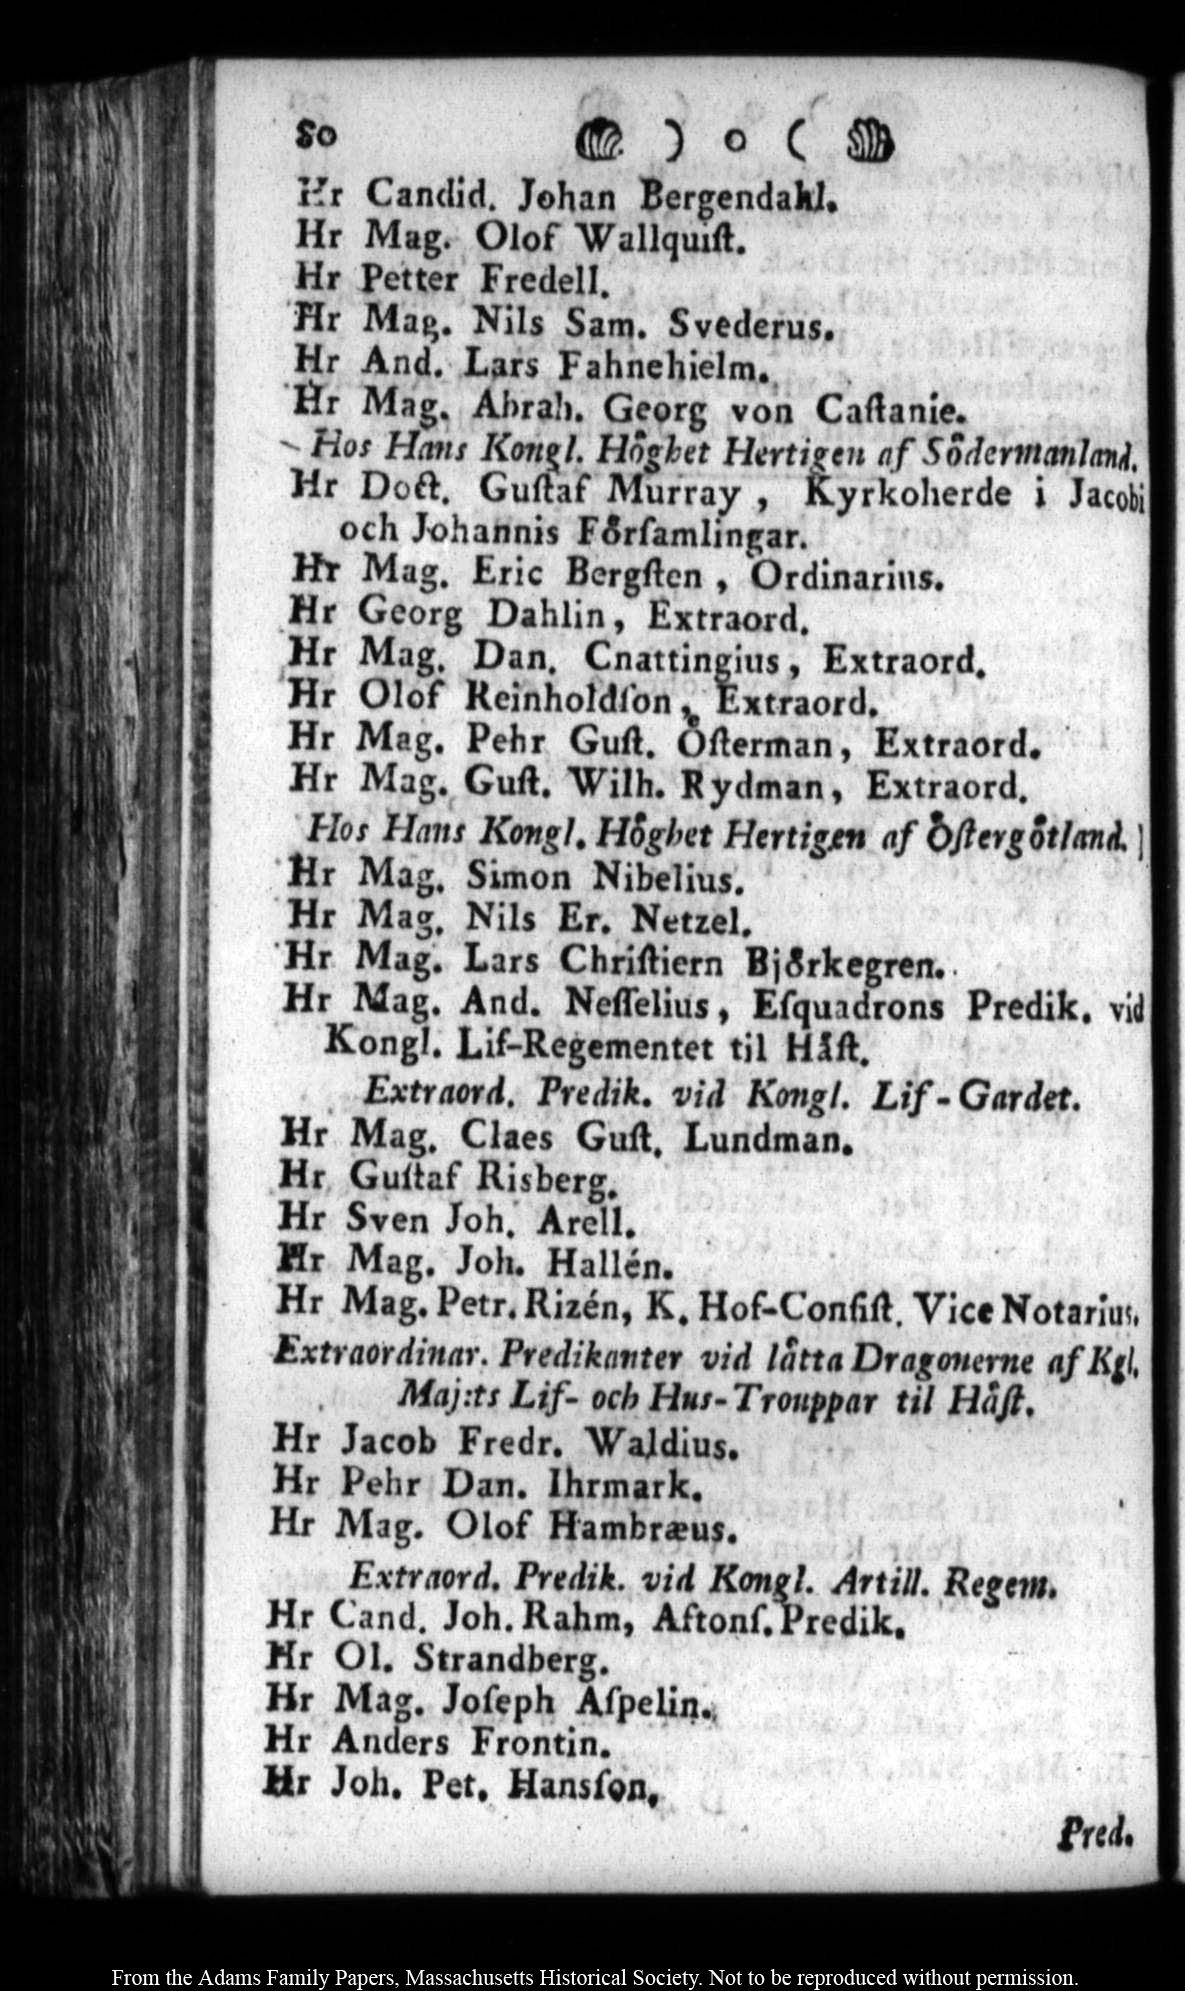 80 ) o (
Hr Candid. Johan Bergendahl.
Hr Mag. Olof Wallquiſt.
Hr Petter Fredell.
Hr Mag. Nils Sam. Svederus.
Hr And. Lars Fahnehielm.
Hr Mag. Abrah. Georg von Caſtanie.
Hos Hans Kongl. Hôghet Hertigen af Sôdermanland.
Hr Doct. Guſtaf Murray, Kyrkoherde i Jacobi
och Johannis Förſamlingar.
Hr Mag. Eric Bergſten, Ordinarius.
Hr Georg Dahlin, Extraord.
Hr Mag. Dan. Cnattingius, Extraord.
Hr Olof Reinholdſon, Extraord.
Hr Mag. Pehr Guſt. Öſterman, Extraord.
Hr Mag. Guſt. Wilh. Rydman, Extraord.
Hos Hans Kongl. Höghet Hertigen af Öſtergötland.
Hr Mag. Simon Nibelius.
Hr Mag. Nils Er. Netzel.
Hr Mag. Lars Chriſtiern Björkegren.
Hr Mag. And. Neſſelius, Eſquadrons Predik. vid
Kongl. Lif-Regementet til Häſt.
Extraord. Predik. vid Kongl. Lif-Gardet.
Hr Mag. Claes Guſt. Lundman.
Hr Guſtaf Risberg.
Hr Sven Joh. Arell.
Hr Mag. Joh. Hallén.
Hr Mag. Petr. Rizén, K. Hof-Conſiſt. Vice Notarius.
Extraordinar. Predikanter vid lätta Dragonerne af Kgl.
Maj:ts Lif- och Hus-Trouppar til Häſt.
Hr Jacob Fredr. Waldius.
Hr Pehr Dan. Ihrmark.
Hr Mag. Olof Hambræus.
Extraord. Predik. vid Kongl. Artill. Regem.
Hr Cand. Joh. Rahm, Aftonſ. Predik.
Hr Ol. Strandberg.
Hr Mag. Joſeph Aſpelin.
Hr Anders Frontin.
Hr Joh. Pet. Hansſon.
Pred.
From the Adams Family Papers, Massachusetts Historical Society. Not to be reproduced without permission.